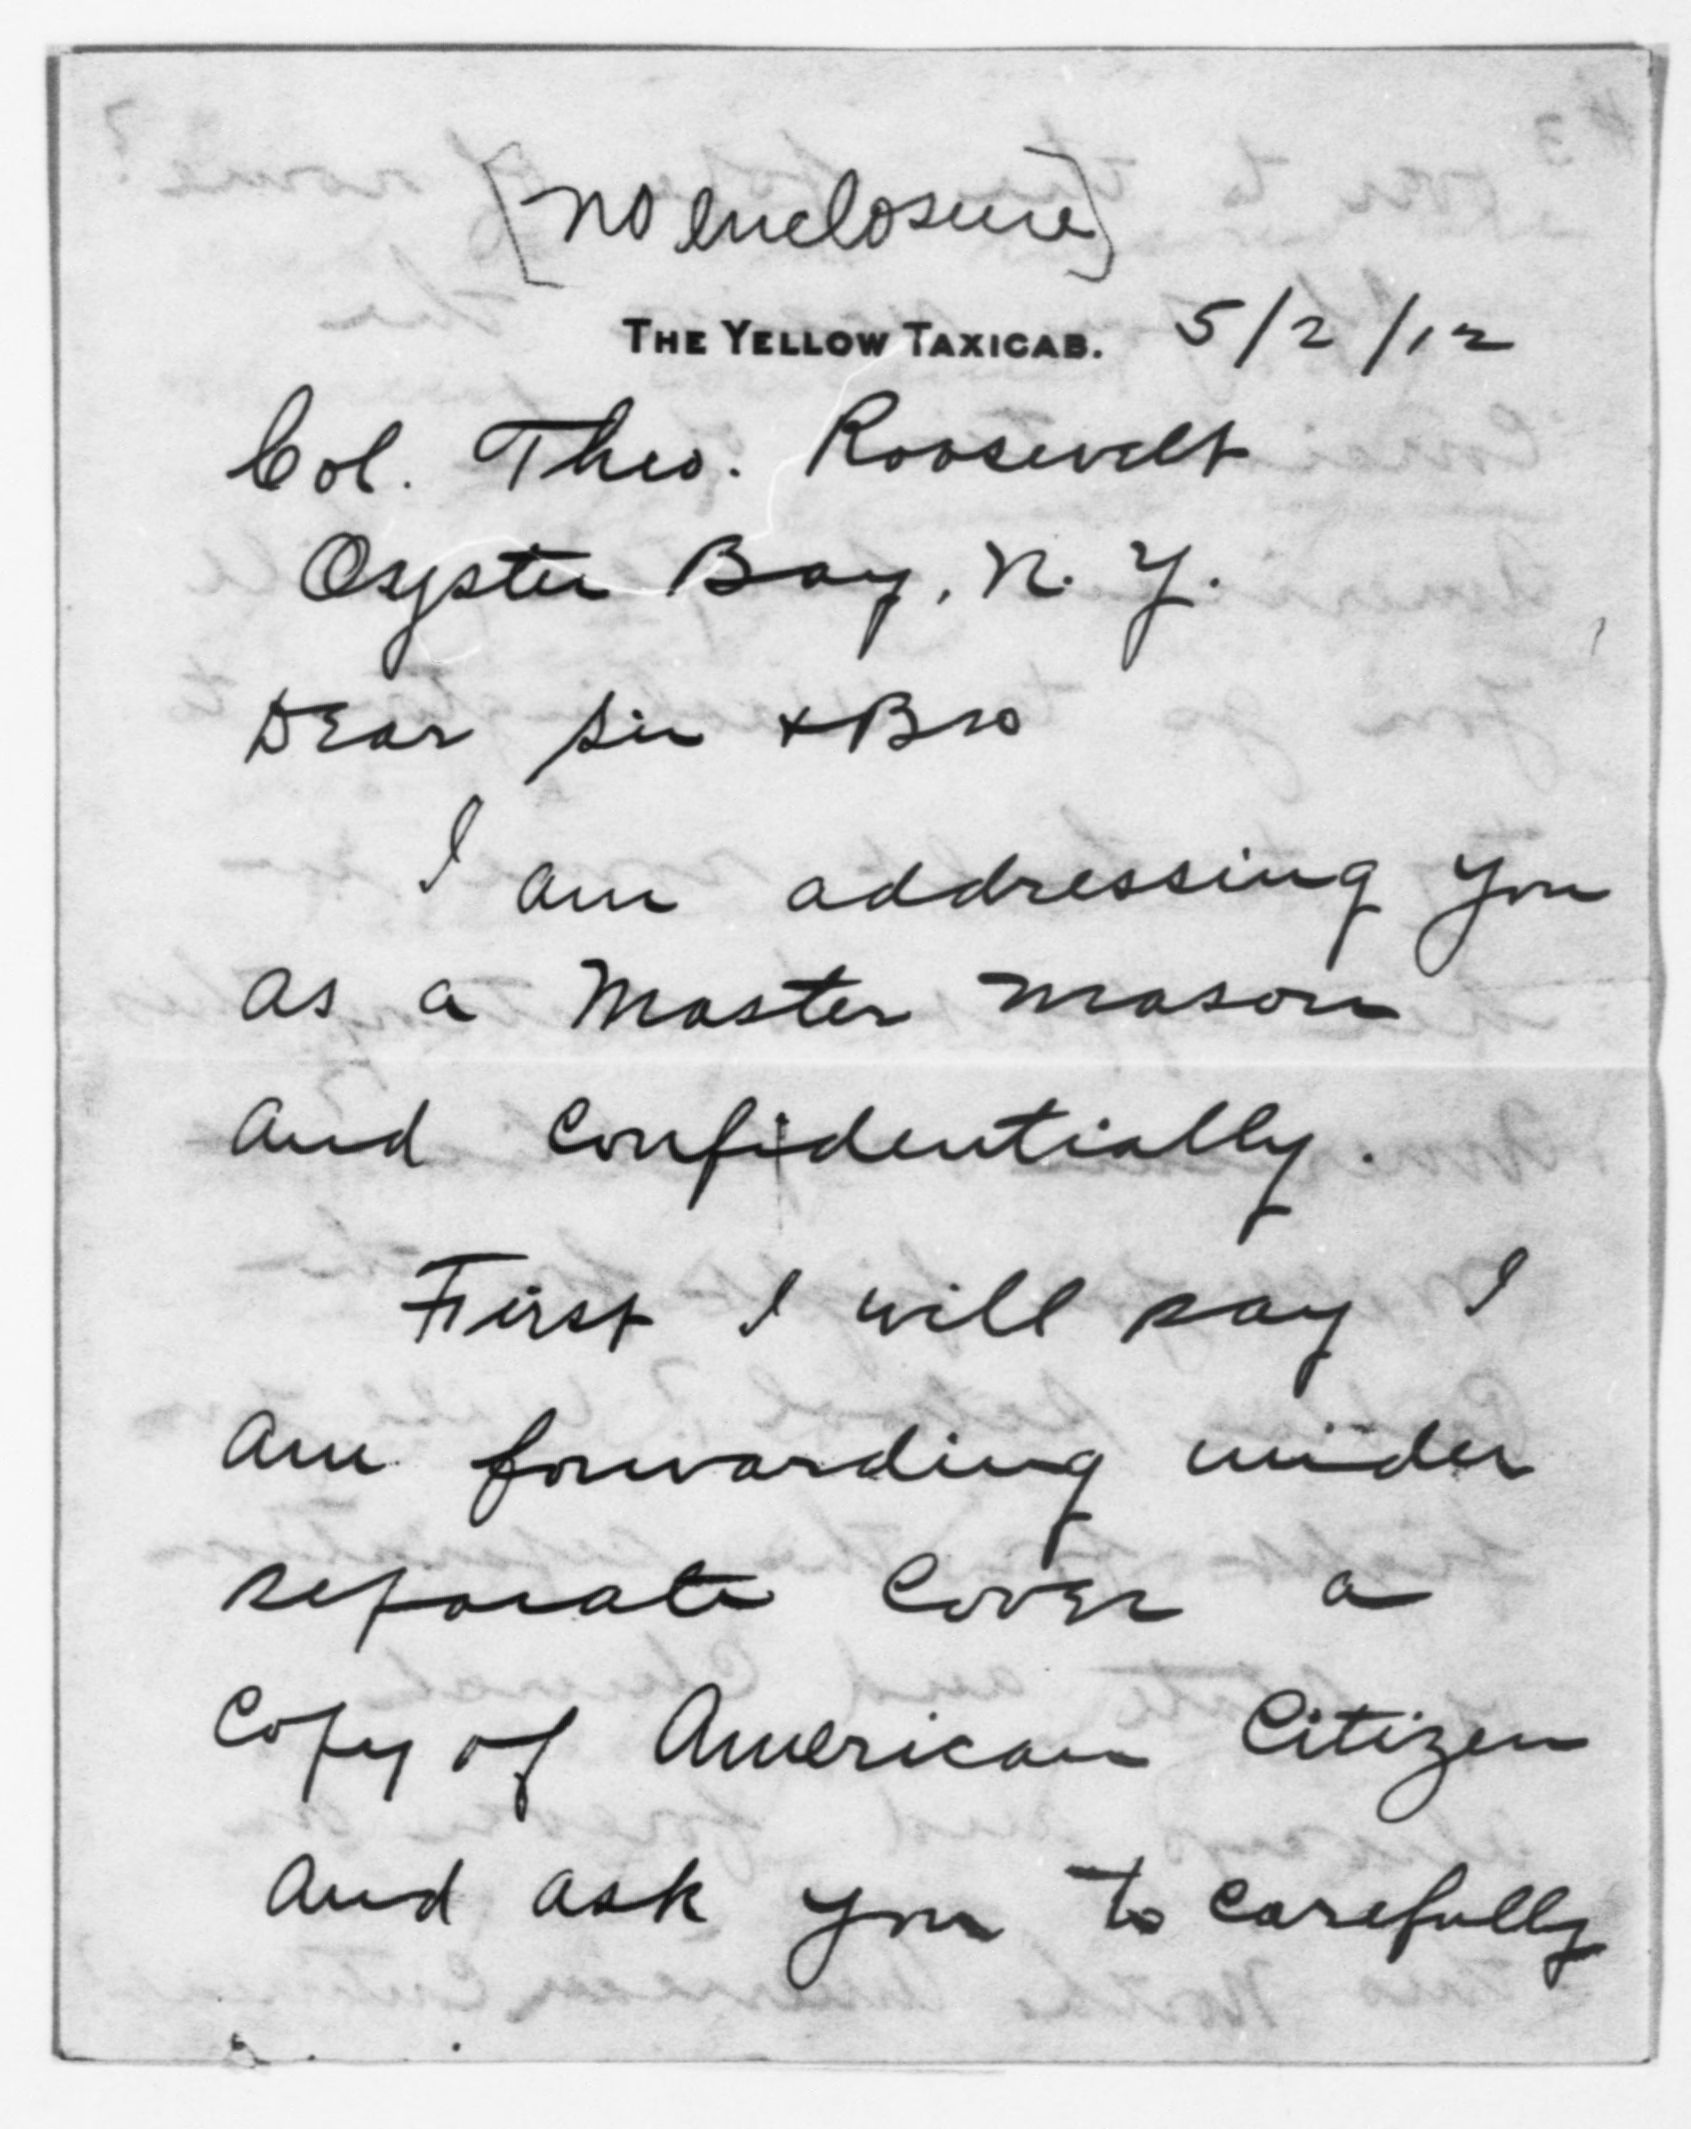 [no enclosure]
THE YELLOW TAXICAB. 5/2/12
Col. Theo. Roosevelt
Oyster Bay, N. Y.
Dear Sir & Bro
I am addressing you
as a Master Mason
and confidentially.
First I will say I
am forwarding under
separate cover a
copy of American Citizen
and ask you to carefully